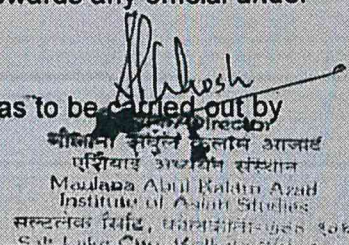 towards any official under
as to be carried out by
Director
मौलाना अबुल कलाम आजाद
एशियाई अध्ययन संस्थान
Maulana Abul Kalam Azad
Institute of Asian Studies
सल्टलेक सिटि,
Salt Lake City,